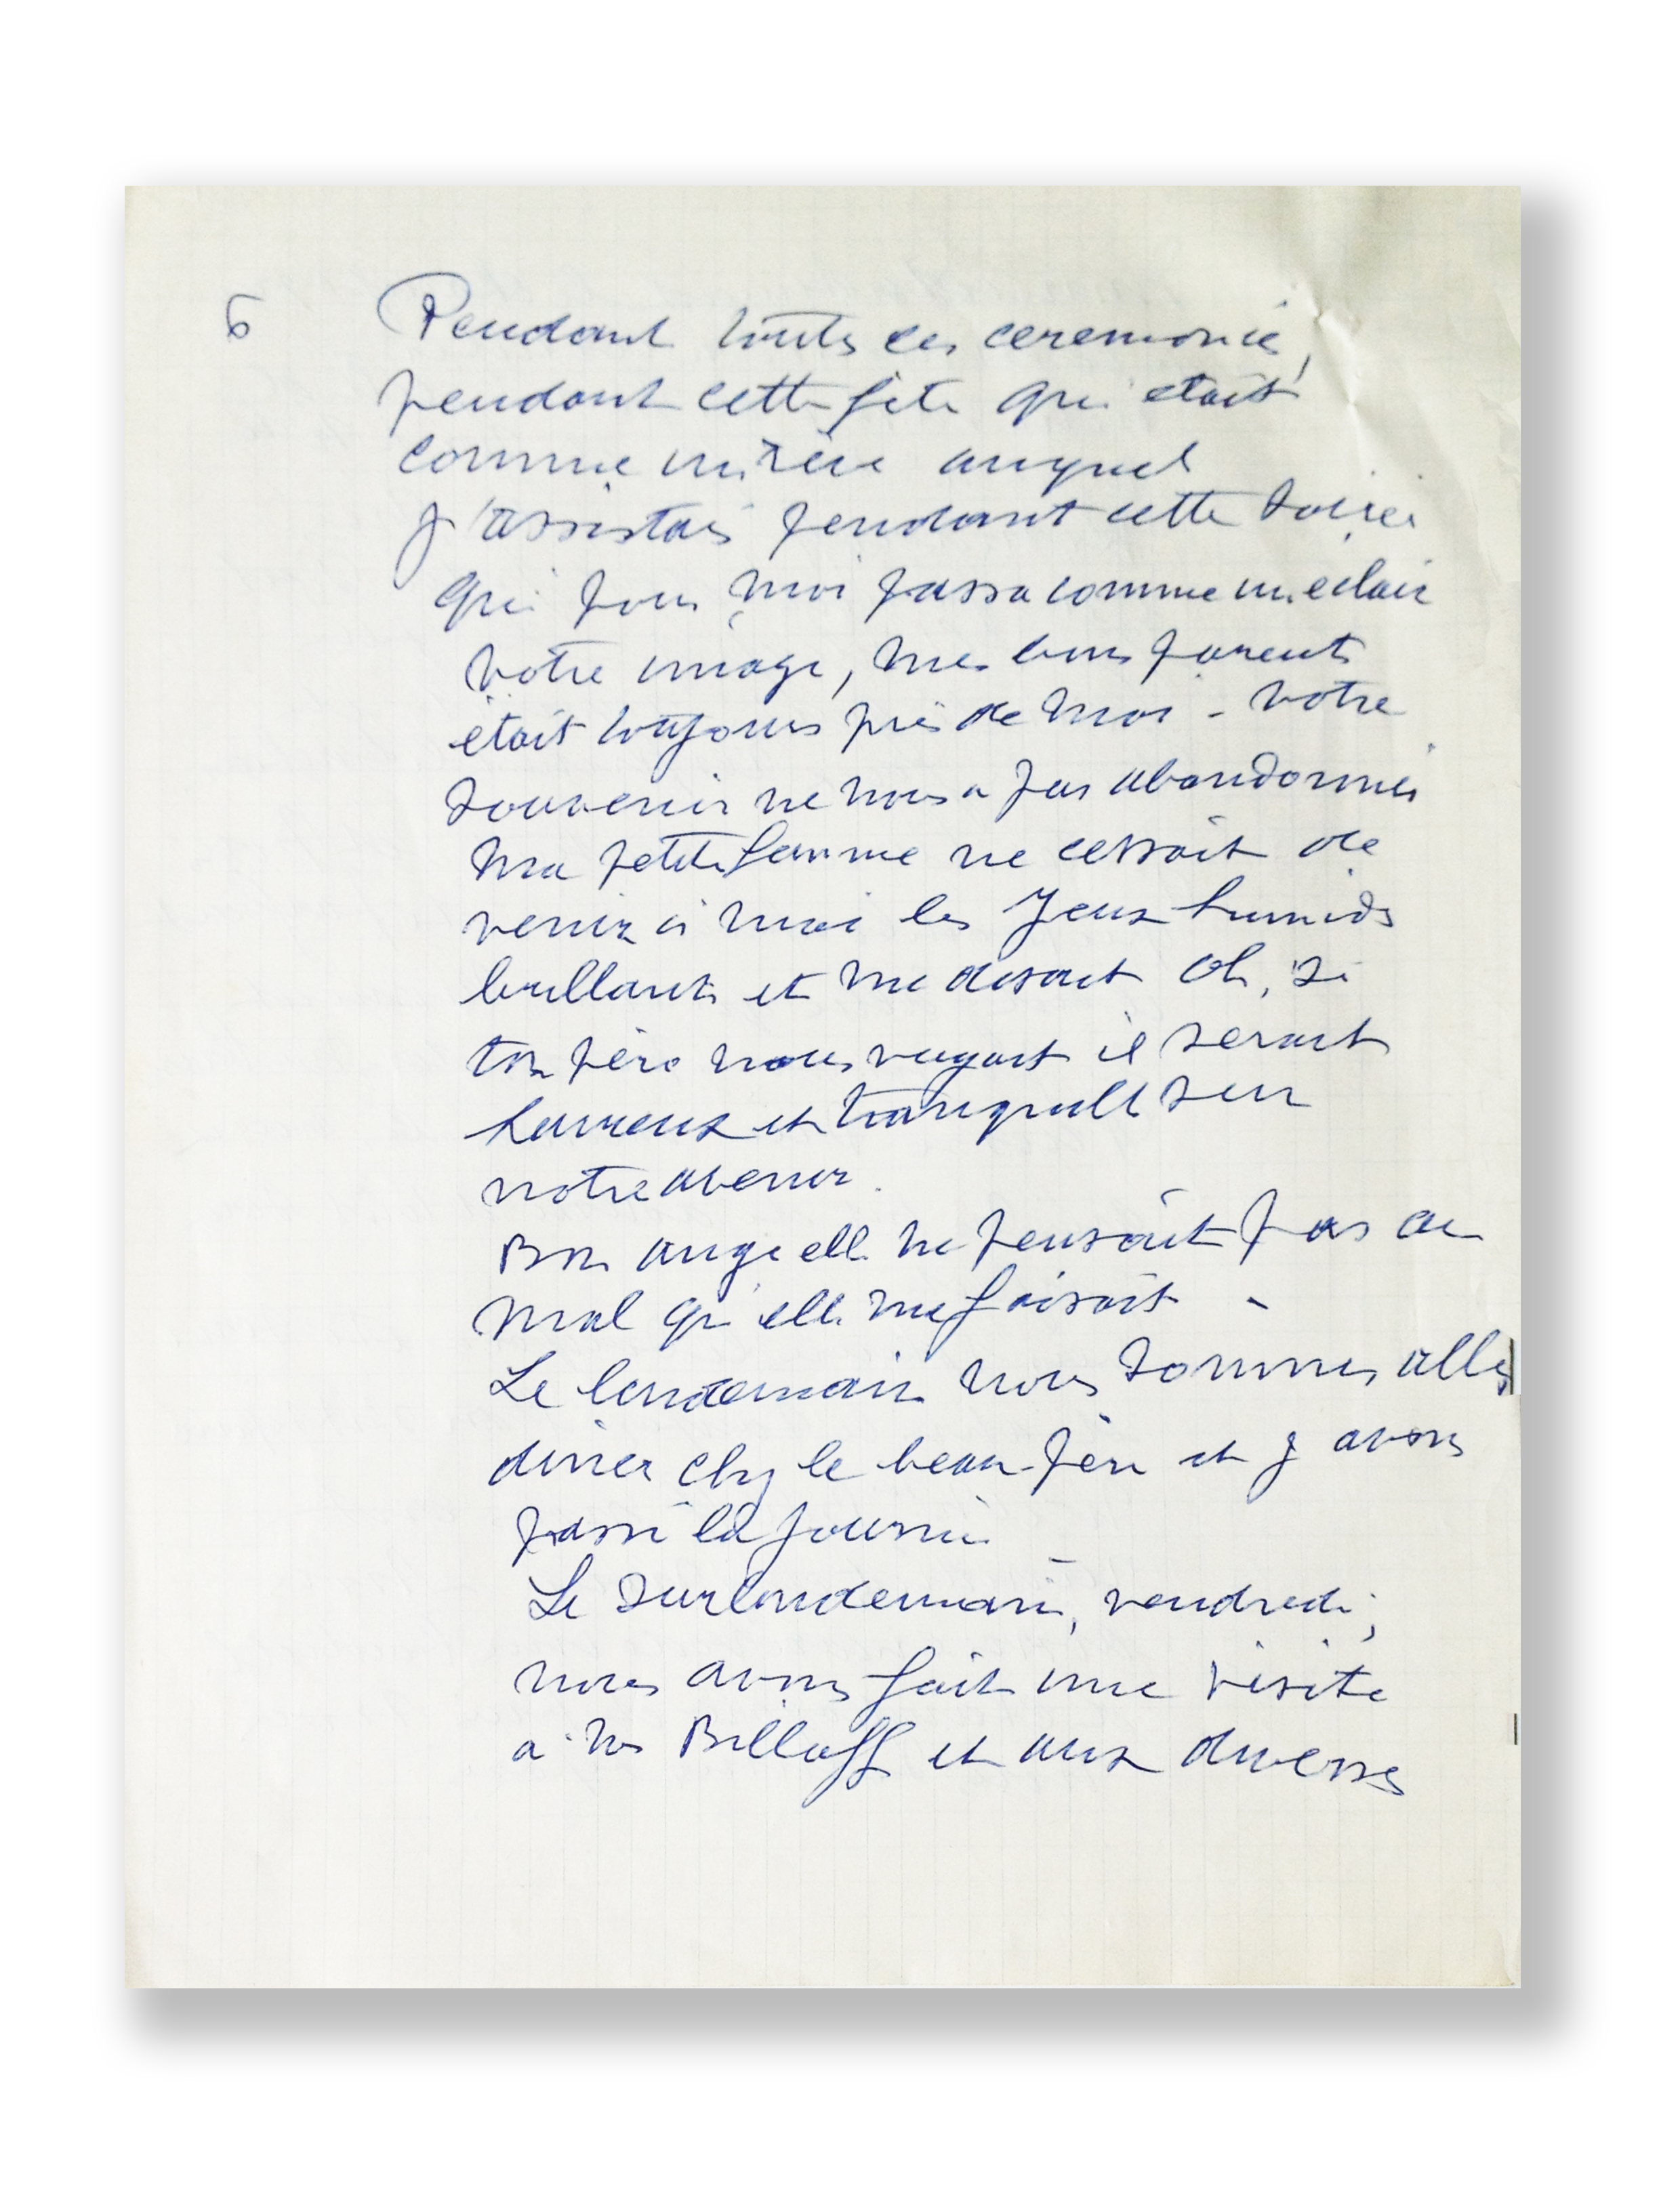 6
Pendant toutes ces ceremonies,
pendant cette fête qui était
comme un rêve auquel
j'assistais pendant cette soirée
qui pour moi passa comme un eclair
votre image, mes bons parents
était toujours près de moi - votre
souvenir ne nous a pas abandonnés
Ma petite femme ne cessait de
venir à moi les yeux humides
brillants et me disait oh, si
ton père nous voyait il serait
heureux et tranquille sur
notre avenir.
Bon ange elle ne pensait pas au
mal qu'elle me faisait -
Le lendemain nous sommes allés
diner chez le beau-père et y avons
passé la journée
Le surlendemain, vendredi,
nous avons fait une visite
a nos Billaff et aux diverses